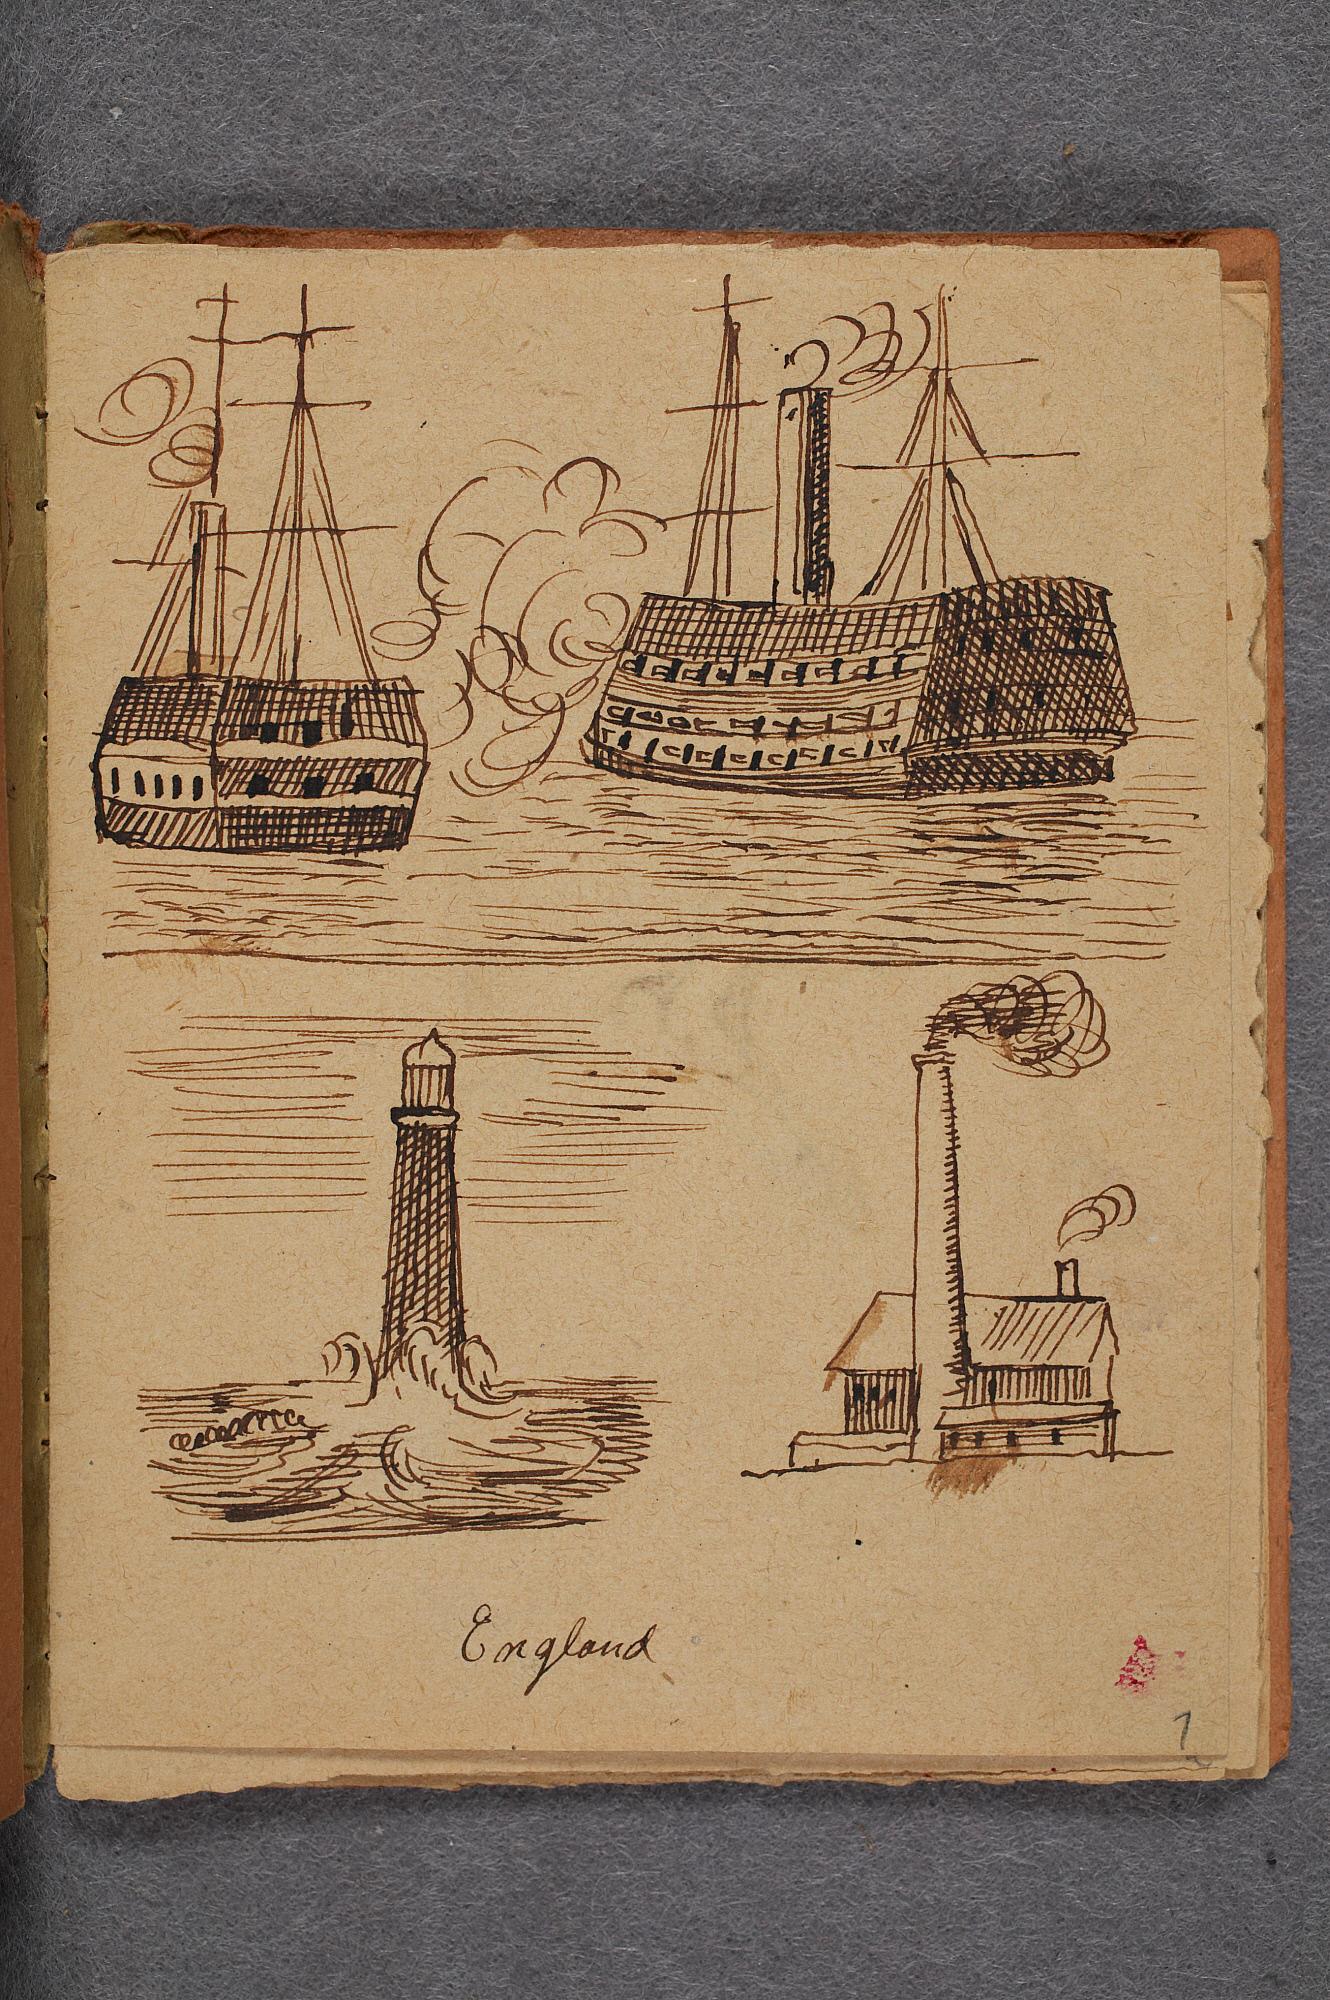 England
1